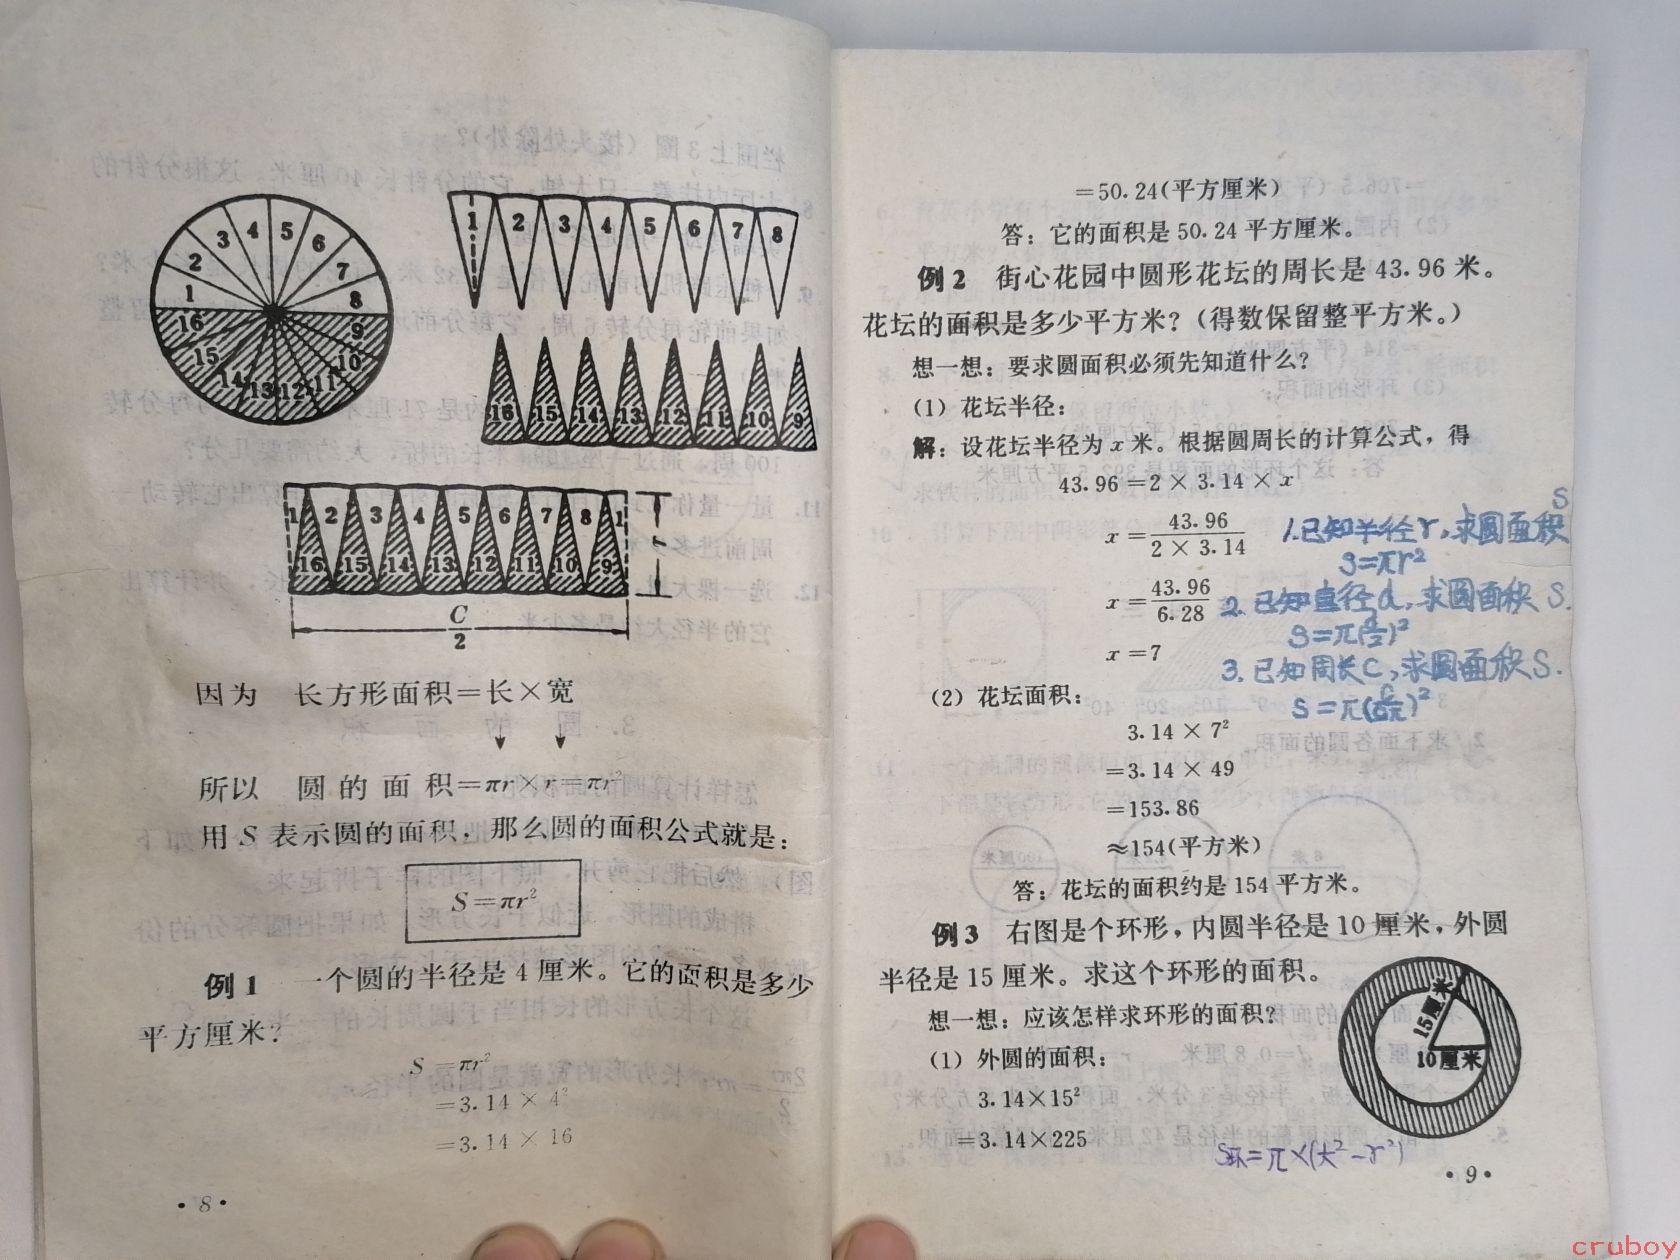 1 2 3 4 5 6 7 8
16 15 14 13 12 11 10 9
1 2 3 4 5 6 7 8
16 15 14 13 12 11 10 9
1 2 3 4 5 6 7 8 1
16 15 14 13 12 11 10 9
r
C/2
因为 长方形面积=长×宽
所以 圆的面积=πr×r=πr²
用 S 表示圆的面积，那么圆的面积公式就是：
S=πr²
例1 一个圆的半径是 4 厘米。它的面积是多少
平方厘米？
S=πr²
=3.14×4²
=3.14×16
·8·
=50.24(平方厘米)
答：它的面积是 50.24 平方厘米。
例2 街心花园中圆形花坛的周长是 43.96 米。
花坛的面积是多少平方米？(得数保留整平方米。)
想一想：要求圆面积必须先知道什么？
(1) 花坛半径：
解：设花坛半径为 x 米。根据圆周长的计算公式，得
43.96=2×3.14×x
x=43.96/(2×3.14)
x=43.96/6.28
x=7
1.已知半径r,求圆面积S
S=πr²
2.已知直径d,求圆面积S.
S=π(d/2)²
3.已知周长C,求圆面积S.
S=π(C/2π)²
(2) 花坛面积：
3.14×7²
=3.14×49
=153.86
≈154(平方米)
答：花坛的面积约是 154 平方米。
例3 右图是个环形，内圆半径是 10 厘米，外圆
半径是 15 厘米。求这个环形的面积。
想一想：应该怎样求环形的面积？
(1) 外圆的面积：
3.14×15²
=3.14×225
15厘米
10厘米
S环=π×(大²-r²)
·9·
cruboy